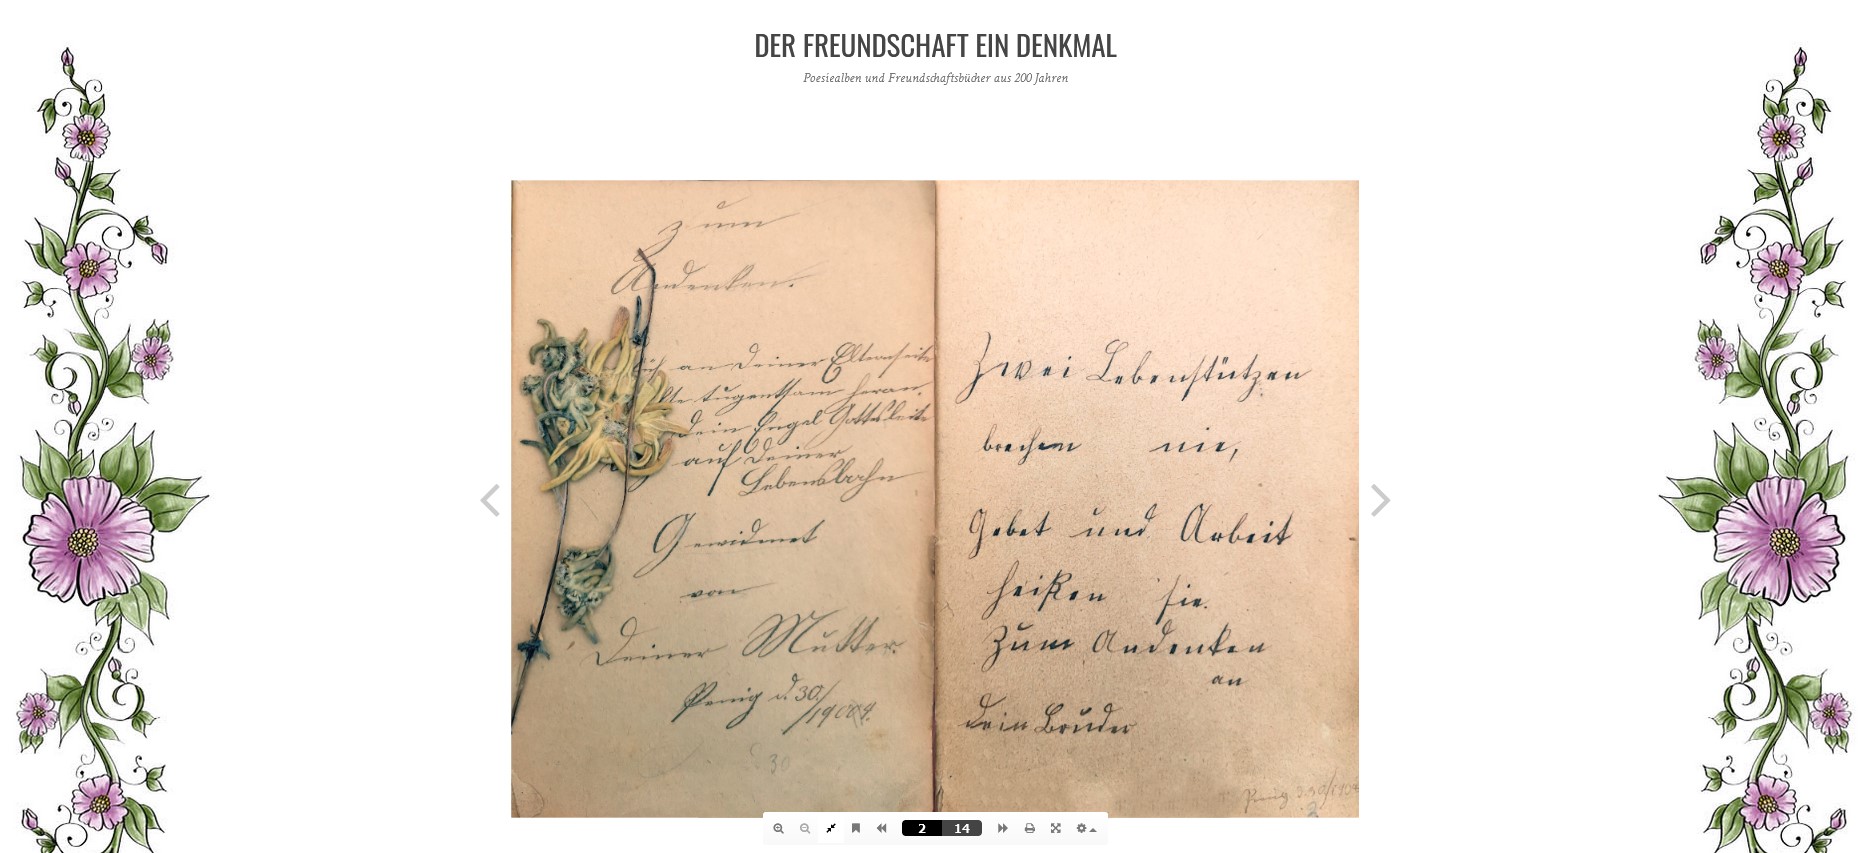 DER FREUNDSCHAFT EIN DENKMAL
Poesiealben und Freundschaftsbücher aus 200 Jahren
Zum
Andenken.
an Deiner Elternseite
tugentsam heran
Dein Engel Gottes leite
auf Deiner
Lebensbahn
Gewidmet
von
Deiner Mutter.
Penig d. 30/
30
Zwei Lebenstützen
brechen nie,
Gebet und Arbeit
heißen sie.
Zum Andenken
an
Dein Bruder
Penig
2 14